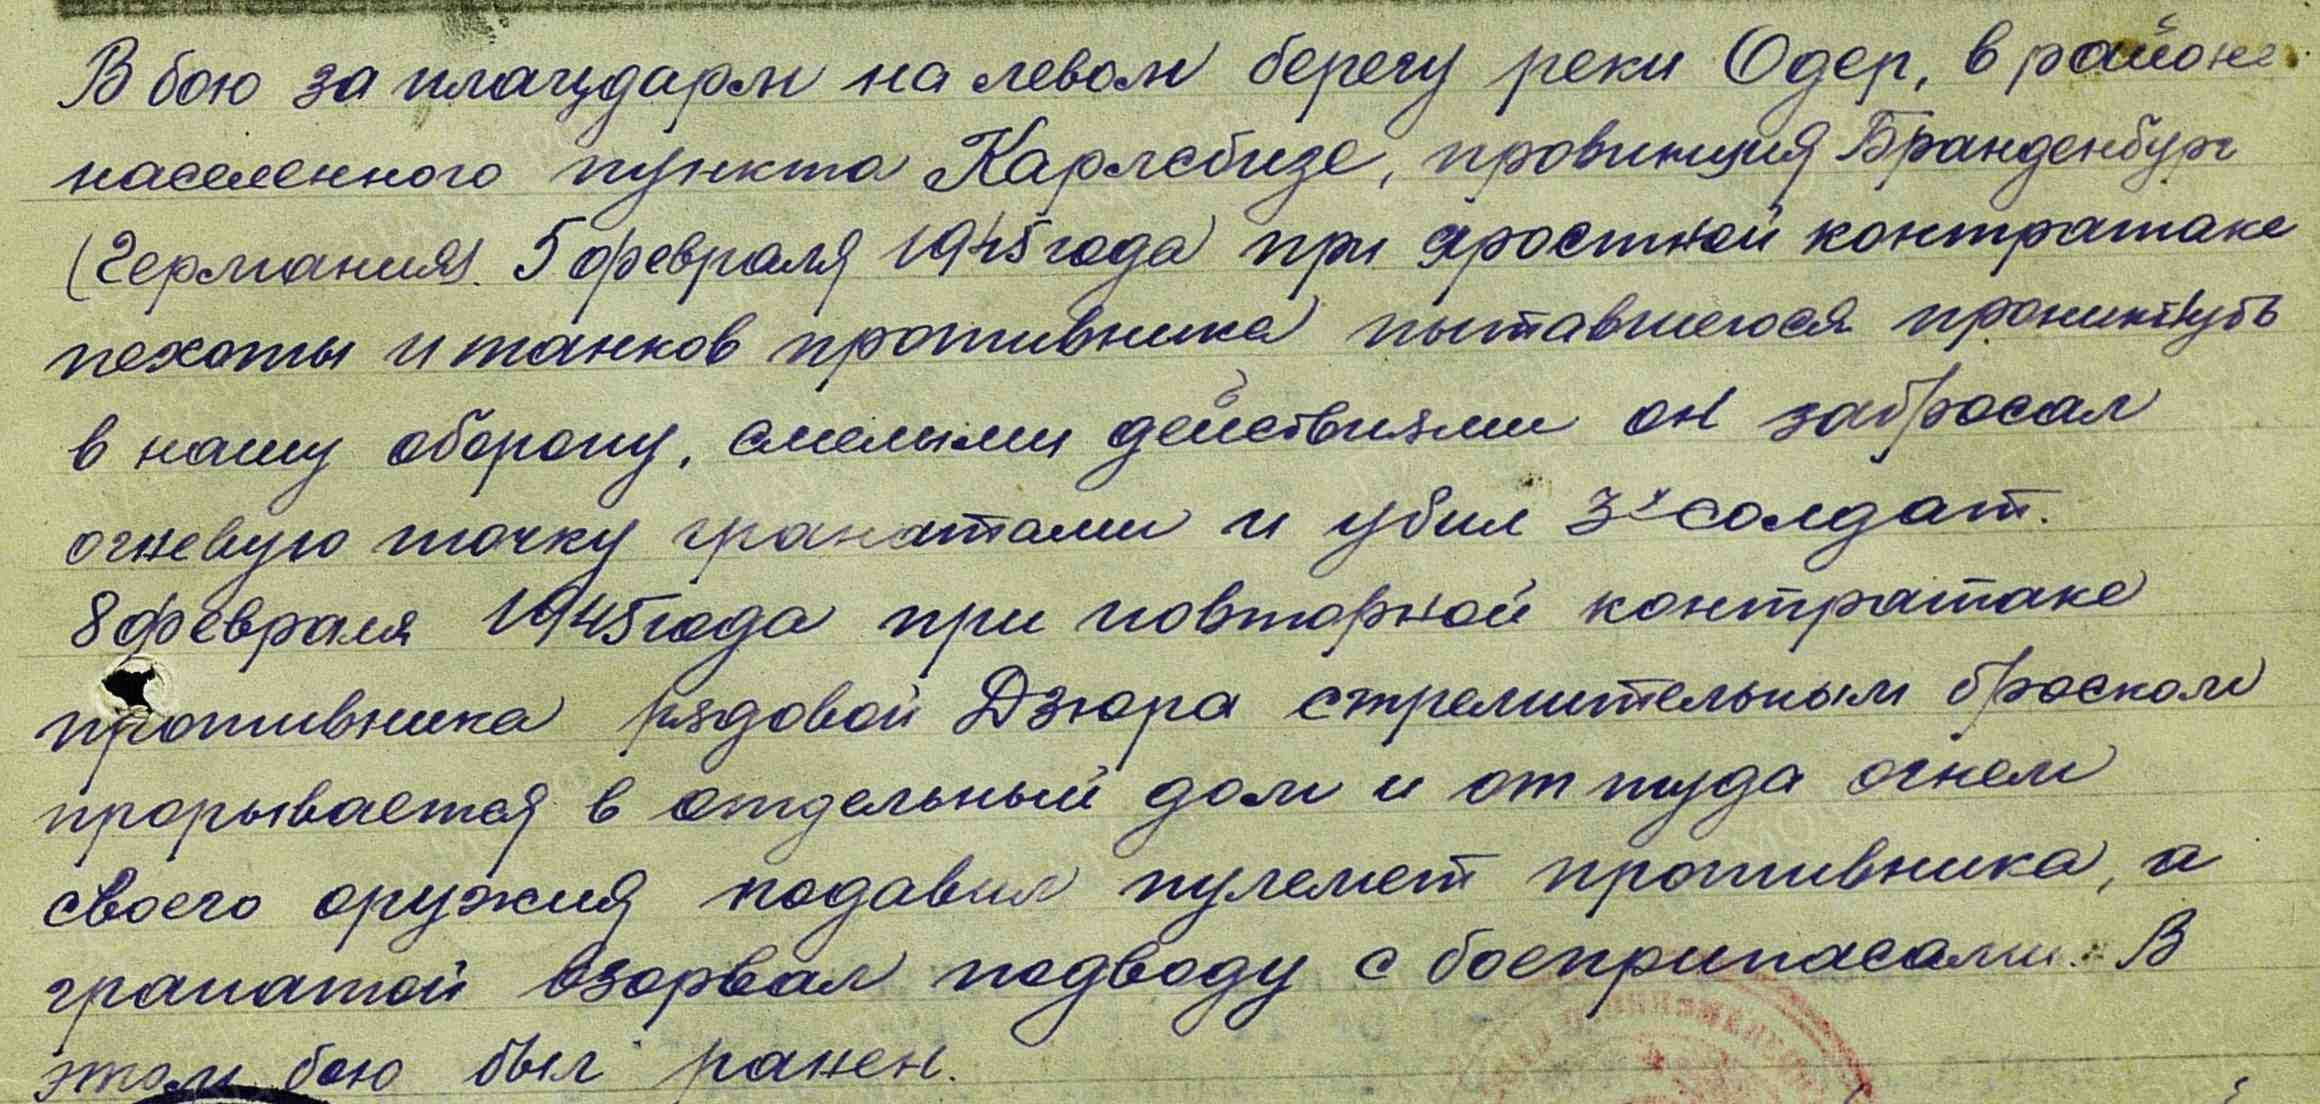 В бою за плацдарм на левом берегу реки Одер, в районе
населенного пункта Карлсбизе, провинция Бранденбург
(Германия). 5 февраля 1945 года при яростной контратаке
пехоты и танков противника пытавшегося проникнуть
в нашу оборону, смелыми действиями он забросал
огневую точку гранатами и убил 3х солдат.
8 февраля 1945 года при повторной контратаке
противника рядовой Дзюра стремительным броском
прорывается в отдельный дом и от туда огнем
своего оружия подавил пулемет противника, а
гранатой взорвал подводу с боеприпасами. В
этом бою был ранен.